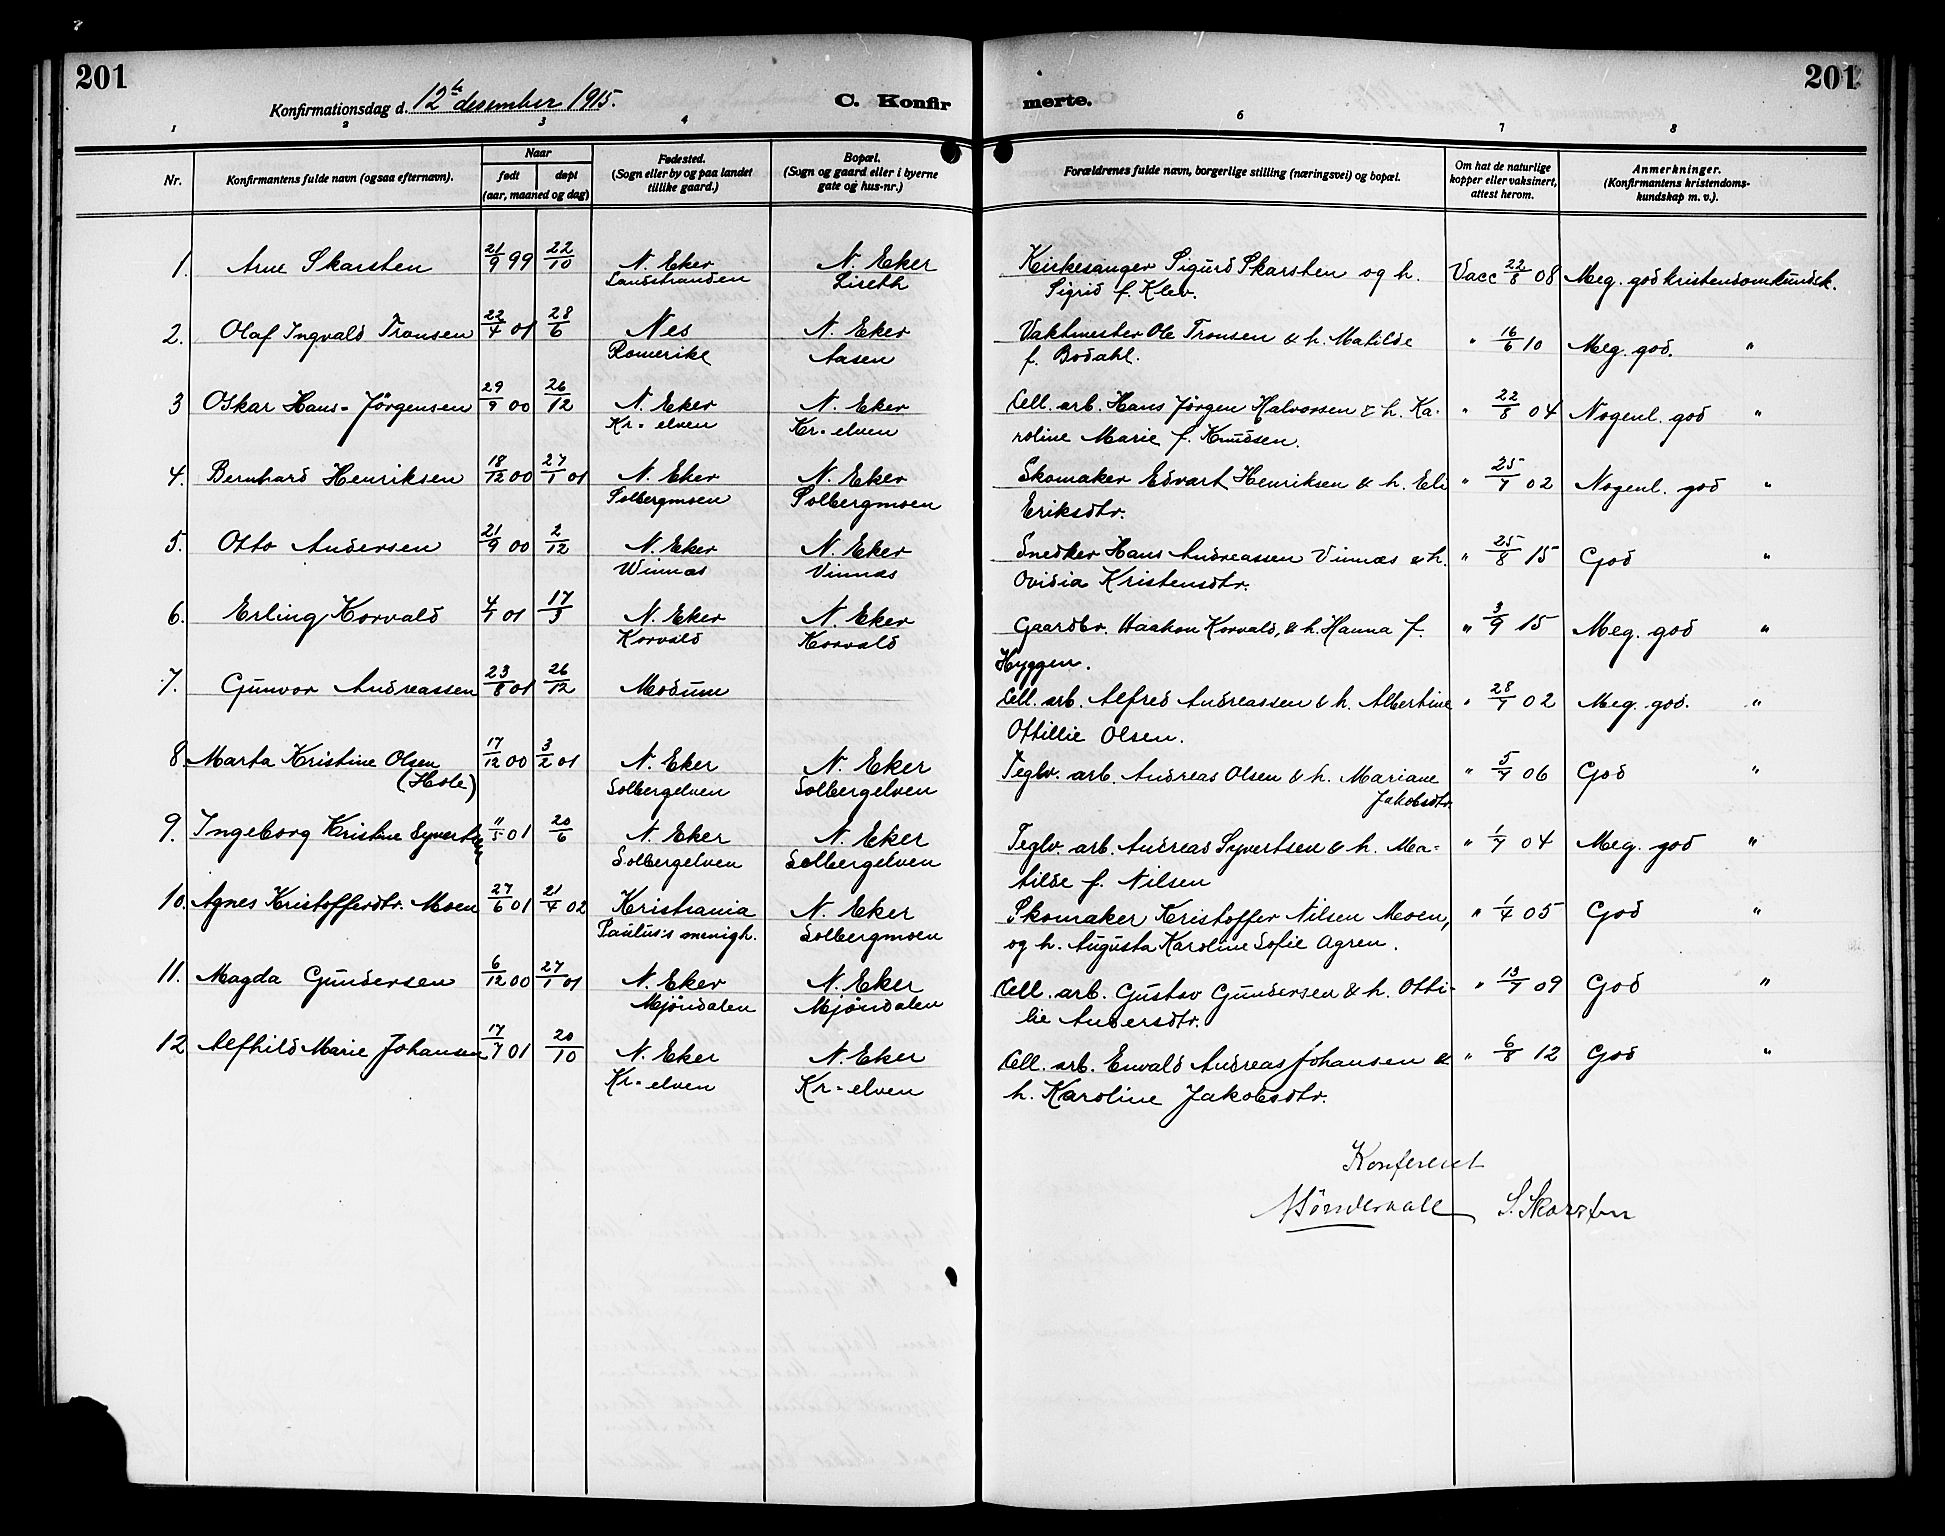 201
201
Konfirmationsdag d. 12te desember 1915.
C. Konfir
merte.
1 2 3 4 6 7 8
Nr.
Konfirmantens fulde navn (ogsaa efternavn).
Naar
født døpt
(aar, maaned og dag)
Fødested.
(Sogn eller by og paa landet
tillike gaard.)
Bopæl.
(Sogn og gaard eller i byerne
gate og hus-nr.)
Forældrenes fulde navn, borgerlige stilling (næringsvei) og bopæl.
Om hat de naturlige
kopper eller vaksinert,
attest herom.
Anmerkninger.
(Konfirmantens kristendoms-
kundskap m. v.).
1. Arne Skarsten 21/9 99 22/10 N. Eker N. Eker Kirkesanger Sigurd Skarsten og h. Vacc 22/8 08 Meg. god kristendomkundsk.
Landstranden Liseth Sigrid f. Klev.
2. Olaf Ingvald Tronsen 22/4 01 28/6 Nes N. Eker Vaktmester Ole Tronsen & h. Matilde " 16/6 10 Meg. god. "
Romerike Aasen f. Bodahl.
3 Oskar Hans-Jörgensen 29/9 00 26/12 N. Eker N. Eker Cell. arb. Hans Jörgen Halvorsen & h. Ka- " 22/8 04 Nogenl. god "
Kr-elven Kr-elven roline Marie f. Knudsen.
4. Bernhard Henriksen 18/12 00 27/1 01 N. Eker N. Eker Skomaker Edvart Henriksen & h. Eli " 25/7 02 Nogenl. god "
Solbergmoen Solbergmoen Eriksdtr.
5. Otto Andersen 21/9 00 2/12 N. Eker N. Eker Snedker Hans Andreassen Vinnæs & h. " 25/8 15 God "
Winnæs Vinnæs Ovidia Kristensdtr.
6. Erling Korvald 4/1 01 17/3 N. Eker N. Eker Gaardbr. Haakon Korvald, & h. Hanna f. " 3/9 15 Meg. god "
Korvald Korvald Hyggen.
7. Gunvor Andreassen 23/8 01 26/12 Modum Cell. arb. Alfred Andreassen & h. Albertine " 28/7 02 Meg. god. "
Ottillie Olsen.
8 Marta Kristine Olsen 17/12 00 3/2 01 N. Eker N. Eker Teglv. arb. Andreas Olsen & h. Mariane " 5/7 06 God "
(Hole) Solbergelven Solbergelven Jakobsdtr.
9. Ingeborg Kristine Syvertsen 11/5 01 20/6 N. Eker N. Eker Teglv. arb. Andreas Syvertsen & h. Ma- " 1/7 04 Meg. god "
Solbergelven Solbergelven tilde f. Nilsen
10. Agnes Kristofferdtr. Moen 27/6 01 21/4 02 Kristiania N. Eker Skomaker Kristoffer Nilsen Moen, " 1/4 05 God "
Paulus:s menigh. Solbergmoen og h. Augusta Karoline Sofie Agren.
11. Magda Gundersen 6/12 00 27/1 01 N. Eker N. Eker Cell. arb. Gustav Gundersen & h. Otti- " 13/7 09 God "
Mjöndalen Mjöndalen lie Andersdtr.
12 Alfhild Marie Johansen 17/7 01 20/10 N. Eker N. Eker Cell. arb. Envald Andreas Johansen & " 6/8 12 God "
Kr-elven Kr-elven h. Karoline Jakobsdtr.
Konferert
S. Skarsten